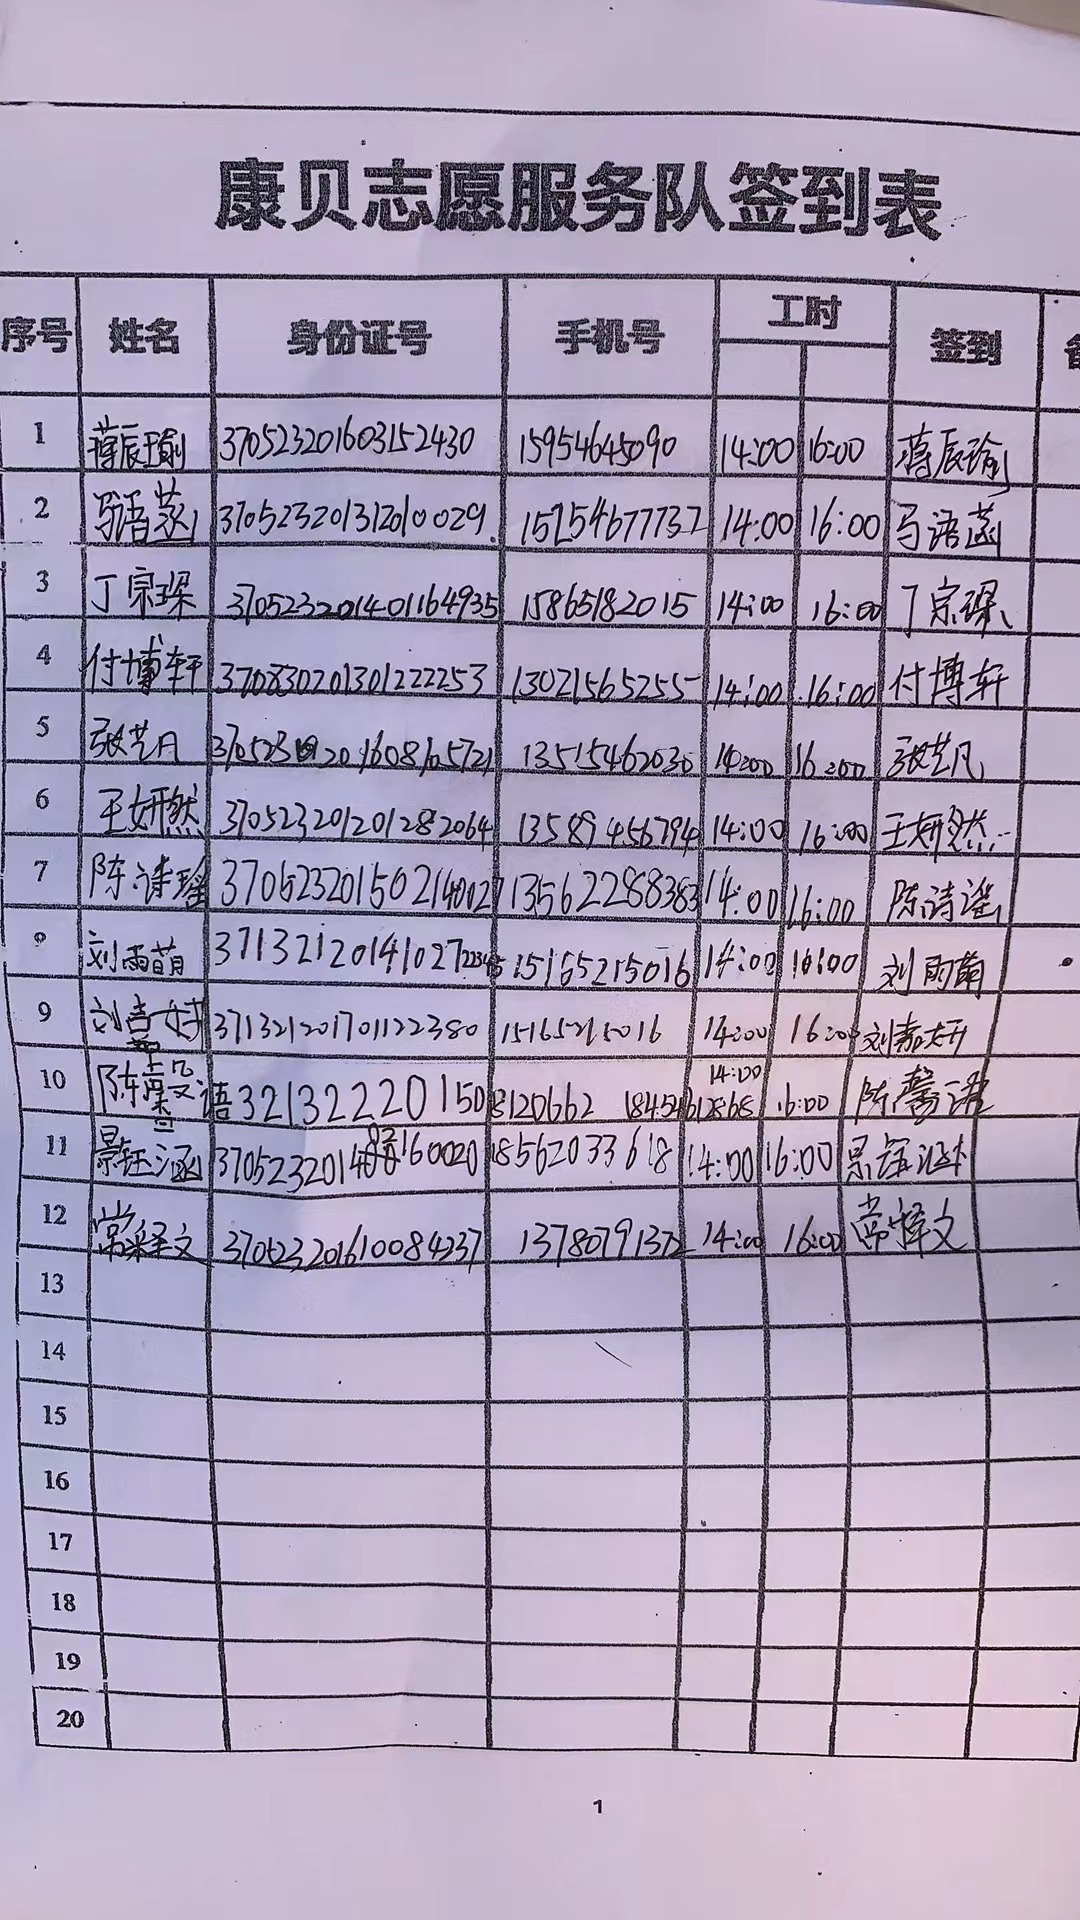 康贝志愿服务队签到表
序号 姓名 身份证号 手机号 工时 签到
1 蒋辰瑜 370523201603152430 15954645090 14:00 16:00 蒋辰瑜
2 马语菡 370523201312010029 15254677737 14:00 16:00 马语菡
3 丁宗琛 370523201401164935 15865182015 14:00 16:00 丁宗琛
4 付博轩 370830201301222253 13021565255 14:00 16:00 付博轩
5 张艺凡 13515462030 14:00 16:00 张艺凡
6 王妍然 370523201201282064 13589456794 14:00 16:00 王妍然
7 陈诗瑶 370523201502140027 13562288383 14:00 16:00 陈诗谣
刘雨萌 15165215016 14:00 16:00 刘雨萌
9 刘嘉妍 371321201701122380 15165215016 14:00 16:00 刘嘉妍
10 陈馨语 321322201508120662 18454612868 14:00 16:00 陈馨语
11 景钰涵 18562033618 14:00 16:00 景钰涵
12 常释文 370523201610084237 1378079137 14:00 16:00 常释文
13
14
15
16
17
18
19
20
1